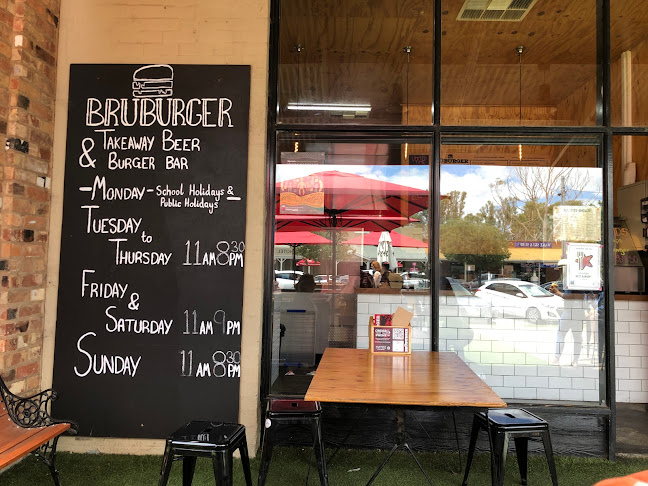 BRUBURGER
TAKEAWAY BEER
& BURGER BAR
-MONDAY - SCHOOL HOLIDAYS & -
PUBLIC HOLIDAYS
TUESDAY
to
THURSDAY 11AM 8 30 PM
FRIDAY
&
SATURDAY 11AM 9PM
SUNDAY 11AM 8 30 PM
BURGER